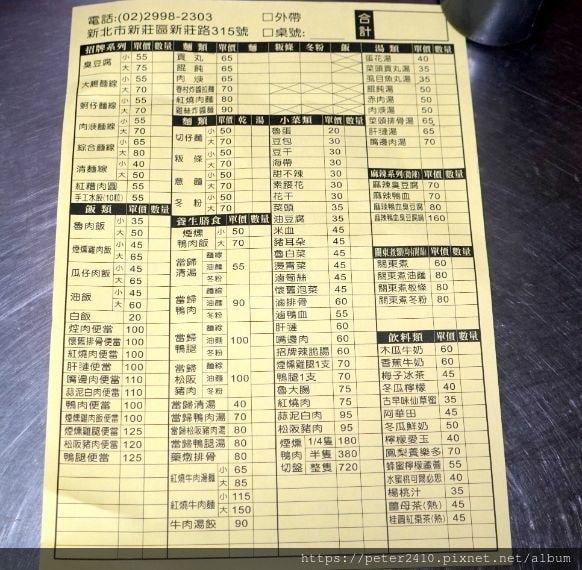 電話:(02)2998-2303
新北市新莊區新莊路315號
□外帶
□桌號:
合計
招牌系列 單價 數量
臭豆腐 小 55
大 75
大腸麵線 小 55
大 70
蚵仔麵線 小 55
大 70
肉羹麵線 小 55
大 65
綜合麵線 小 65
大 80
清麵線 小 40
大 50
紅糟肉圓 55
手工水餃(10粒) 55
飯類 單價 數量
魯肉飯 小 35
大 50
煙燻雞肉飯 小 45
大 65
瓜仔肉飯 小 45
大 65
油飯 小 45
大 60
白飯 20
焢肉便當 100
懷舊排骨便當 100
紅燒肉便當 100
肝連便當 100
嘴邊肉便當 110
蒜泥白肉便當 110
鴨肉便當 100
煙燻雞肉飯便當 100
煙燻雞腿便當 125
松阪豬便當 120
鴨腿便當 125
麵類 單價 數量 麵 粄條 冬粉 飯
貢丸 65
餛飩 65
肉羹 65
70
紅燒肉麵 80
90
麵類 單價 乾 湯
切仔麵 小 50
大 70
粄條 小 50
大 70
意麵 小 50
大 70
冬粉 小 50
大 70
養生膳食 單價 數量
煙燻鴨肉飯 小 50
大 70
當歸清湯 麵線 油麵 冬粉 55
當歸鴨肉 麵線 油麵 冬粉 90
當歸鴨腿 麵線 油麵 冬粉 100
當歸松阪豬肉 麵線 油麵 冬粉 100
當歸清湯 40
當歸鴨肉湯 70
當歸松阪豬肉湯 80
當歸鴨腿湯 80
藥燉排骨 80
紅燒牛肉湯麵 小 65
大 85
紅燒牛肉麵 小 115
大 150
牛肉湯餃 90
小菜類 單價 數量
魯蛋 20
豆包 30
豆干 30
海帶 30
甜不辣 30
素腰花 30
花干 30
菜頭 35
油豆腐 35
米血 45
豬耳朵 45
魯白菜 45
燙青菜 45
滷筍絲 45
懷舊泡菜 45
滷排骨 60
滷鴨血 55
肝連 60
嘴邊肉 60
招牌辣脆腸 60
煙燻雞腿1支 70
鴨腿1支 70
魯大腸 75
紅燒肉 75
蒜泥白肉 95
松阪豬肉 95
煙燻鴨肉 1/4隻 180
半隻 380
切盤 整隻 720
湯類 單價 數量
蛋花湯 40
菜頭貢丸湯 35
虱目魚丸湯 35
餛飩湯 50
赤肉湯 50
肉羹湯 50
菜頭排骨湯 65
肝連湯 65
嘴邊肉湯 70
麻辣系列(微辣) 單價 數量
麻辣臭豆腐 70
麻辣鴨血 70
麻辣鴨血臭豆腐 80
麻辣鴨血臭豆腐鍋 160
單價 數量
關東煮 60
關東煮油麵 80
關東煮粄條 80
關東煮冬粉 80
飲料類 單價 數量
木瓜牛奶 60
香蕉牛奶 60
梅子冰茶 45
冬瓜檸檬 40
古早味仙草蜜 35
阿華田 45
冬瓜鮮奶 50
檸檬愛玉 40
鳳梨養樂多 70
蜂蜜檸檬蘆薈 55
水蜜桃可爾必思 40
楊桃汁 35
薑母茶(熱) 45
桂圓紅棗茶(熱) 45
https://peter2410.pixnet.net/album